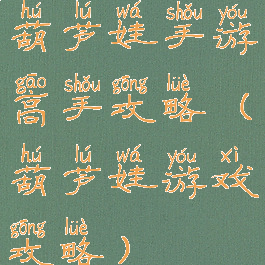 hú lú wá shǒu yóu
葫芦娃手游
gāo shǒu gōng lüè
高手攻略（
hú lú wá yóu xì
葫芦娃游戏
gōng lüè
攻略）